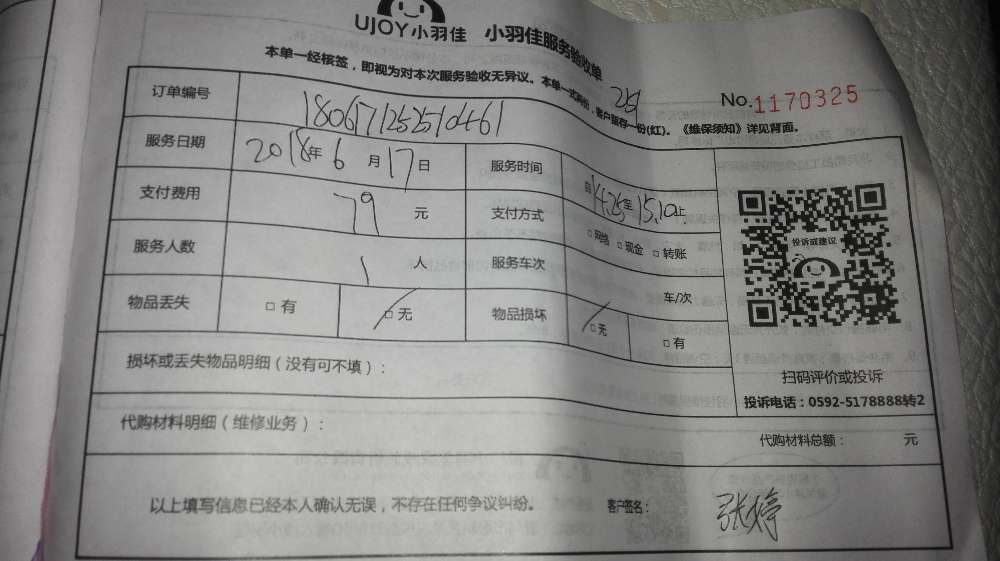 UJOY小羽佳 小羽佳服务验收单
本单一经核签，即视为对本次服务验收无异议。本单一式两份，客户留存一份(红)。《维保须知》详见背面。
251
No.1170325
订单编号 180617125210461
服务日期 2018年6月17日 服务时间 自14:25至15:10止
支付费用 79元 支付方式 □网络 □现金 □转账
服务人数 1人 服务车次 车/次
物品丢失 □有 □无 物品损坏 □无 □有
投诉或建议
扫码评价或投诉
投诉电话：0592-5178888转2
损坏或丢失物品明细（没有可不填）：
代购材料明细（维修业务）：
代购材料总额： 元
以上填写信息已经本人确认无误，不存在任何争议纠纷。 客户签名： 张婷